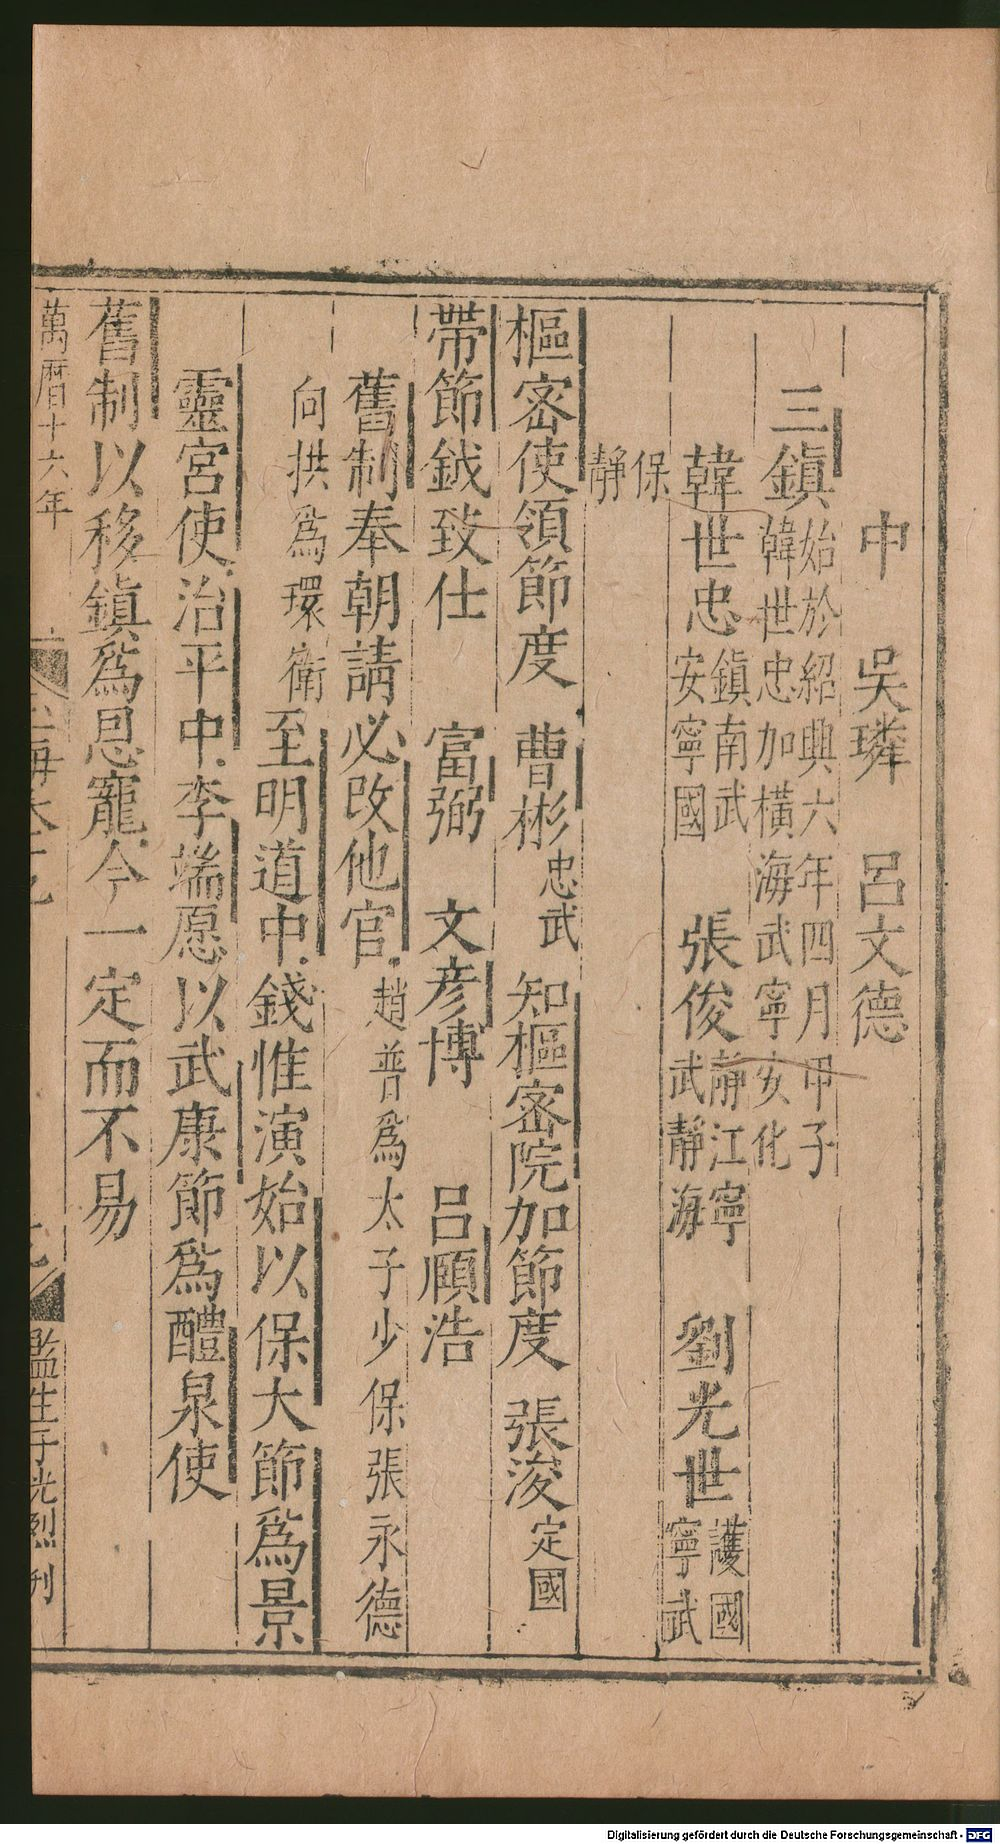 中　吳璘　呂文德
三鎮始於紹興六年四月甲子韓世忠加橫海武寧安化
韓世忠鎮南武安寧國　張俊靜江寧武靜海　劉光世護國寧武
保靜
樞密使領節度　曹彬忠武　知樞密院加節度　張浚定國
帶節鉞致仕　富弼　文彥博　呂頤浩
舊制奉朝請必改他官趙普為太子少保張永德
向拱為環衛至明道中錢惟演始以保大節為景
靈宮使治平中李端愿以武康節為醴泉使
舊制以移鎮為恩寵今一定而不易
萬曆十六年
監生于光烈刊
Digitalisierung gefördert durch die Deutsche Forschungsgemeinschaft - DFG